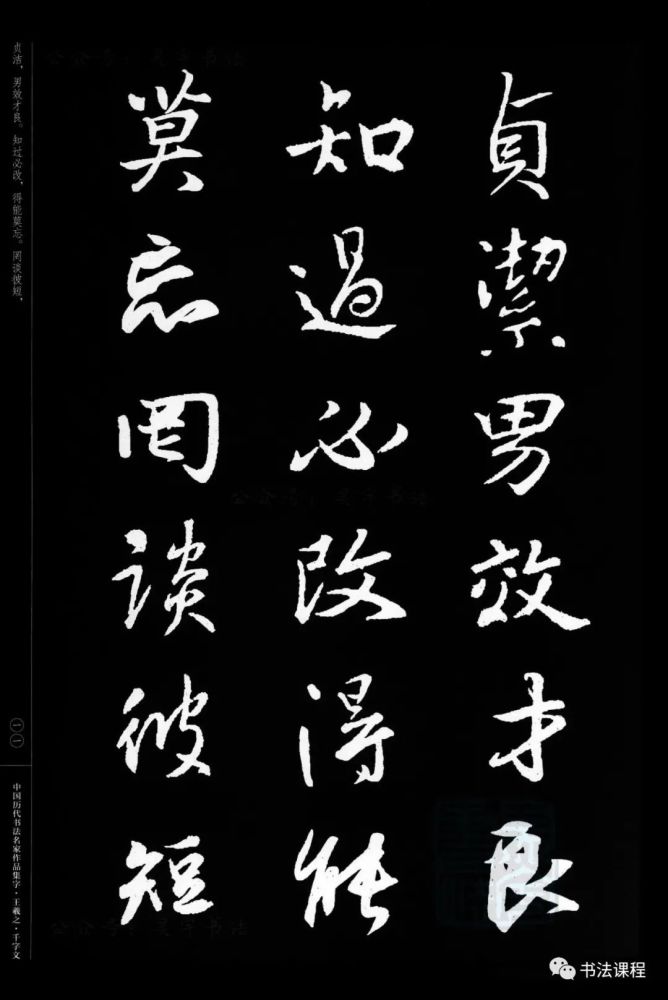 貞潔男效才良
知過必改得能
莫忘罔談彼短
贞洁，男效才良。知过必改，得能莫忘。罔谈彼短，
一一
中国历代书法名家作品集字·王羲之·千字文
书法课程